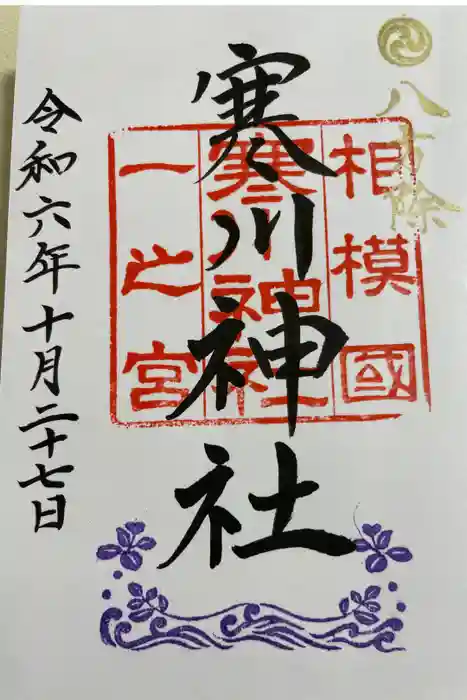 八方除
寒川神社
相模國
寒川神社
一之宮
令和六年十月二十七日